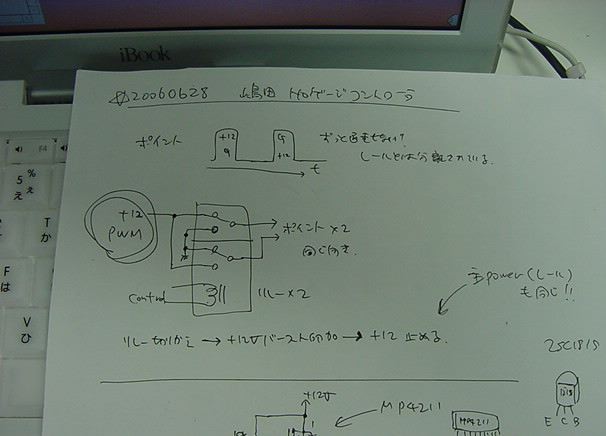 iBook
20060628 嶋田 HOゲージコントローラ
ポイント
+12
G
G
+12
t
レールとは分離されている。
+12
PWM
ポイント×2
同じ向き
control
リレー×2
主power(レール)
も同じ!!
リレー切りかえ → +12Vバースト印加 → +12 止める.
2SC1815
E C B
+12V
MP4211
MP4211
%
5
え
T
か
F
は
V
ひ
F4